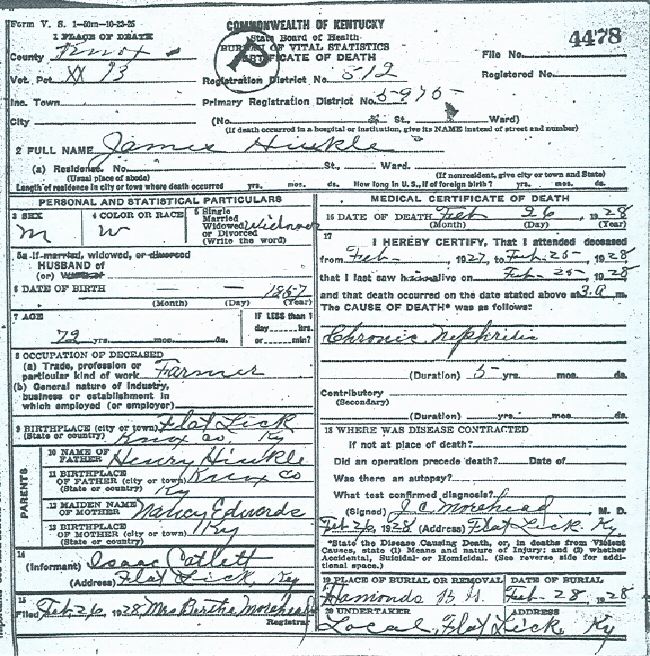 Form V. S. 1-50m-10-23-25
COMMONWEALTH OF KENTUCKY
State Board of Health
BUREAU OF VITAL STATISTICS
CERTIFICATE OF DEATH
4478
1 PLACE OF DEATH
County Knox
File No.
Vot. Pct XX 93
Registration District No. 512
Registered No.
Inc. Town
Primary Registration District No. 5975
City (No. St., Ward)
(If death occurred in a hospital or institution, give its NAME instead of street and number)
2 FULL NAME James Hinkle
(a) Residence. No. St., Ward.
(Usual place of abode) (If nonresident, give city or town and State)
Length of residence in city or town where death occurred yrs. mos. ds. How long in U.S., if of foreign birth? yrs. mos. ds.
PERSONAL AND STATISTICAL PARTICULARS
3 SEX
M
4 COLOR OR RACE
W
5 Single
Married
Widowed
or Divorced
(Write the word)
Widower
5a If married, widowed, or divorced
HUSBAND of
(or) WIFE of
6 DATE OF BIRTH — — 1857
(Month) (Day) (Year)
7 AGE
72 yrs. mos. ds.
IF LESS than 1
day----hrs.
or-----min?
8 OCCUPATION OF DECEASED
(a) Trade, profession or
particular kind of work Farmer
(b) General nature of industry,
business or establishment in
which employed (or employer)
9 BIRTHPLACE (city or town) Flat Lick
(State or country) Knox Co, Ky
PARENTS
10 NAME OF
FATHER Henry Hinkle
11 BIRTHPLACE
OF FATHER (city or town) Knox Co
(State or country) Ky
12 MAIDEN NAME
OF MOTHER Nancy Edwards
13 BIRTHPLACE
OF MOTHER Ky
(State or country)
14
(Informant) Isaac Catlett
(Address) Flat Lick, Ky
15
Filed Feb 26, 1928, Mrs Bertha Morehead
Registrar
MEDICAL CERTIFICATE OF DEATH
16 DATE OF DEATH Feb 26 1928
(Month) (Day) (Year)
17
I HEREBY CERTIFY, That I attended deceased
from Feb 1927, to Feb-25- 1928
that I last saw him alive on Feb-25- 1928
and that death occurred on the date stated above at 3.a m.
The CAUSE OF DEATH* was as follows:
Chronic Nephritis
(Duration) 5 yrs. mos. ds.
Contributory
(Secondary)
(Duration) yrs. mos. ds.
18 WHERE WAS DISEASE CONTRACTED
If not at place of death?
Did an operation precede death? Date of
Was there an autopsy?
What test confirmed diagnosis?
(Signed) J.C. Morehead M. D.
Feb 26, 1928 (Address) Flat Lick Ky.
*State the Disease Causing Death, or, in deaths from Violent
Causes, state (1) Means and nature of Injury; and (2) whether
Accidental, Suicidal or Homicidal. (See reverse side for addi-
tional space.)
19 PLACE OF BURIAL OR REMOVAL
Hamonds B G.
DATE OF BURIAL
Feb-28, 1928
20 UNDERTAKER
Local,
ADDRESS
Flat Lick Ky